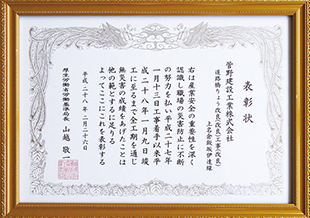 表彰状
菅野建設工業株式会社
道路橋りょう改良(改良)工事(改良)
上名倉飯坂伊達線
右は産業安全の重要性を深く
認識し職場の災害防止に不断
の努力を払い平成二十七年
一月十三日工事着手以来平
成二十八年一月九日竣
工に至るまで全工期を通じ
無災害の成績をあげたことは
他の範とするに足りる
よってここにこれを表彰する
平成二十八年二月二十六日
厚生労働省労働基準局長 山越敬一